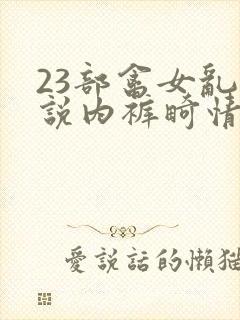 23部禽女亂
說内裤畸情
愛説話的懶猫